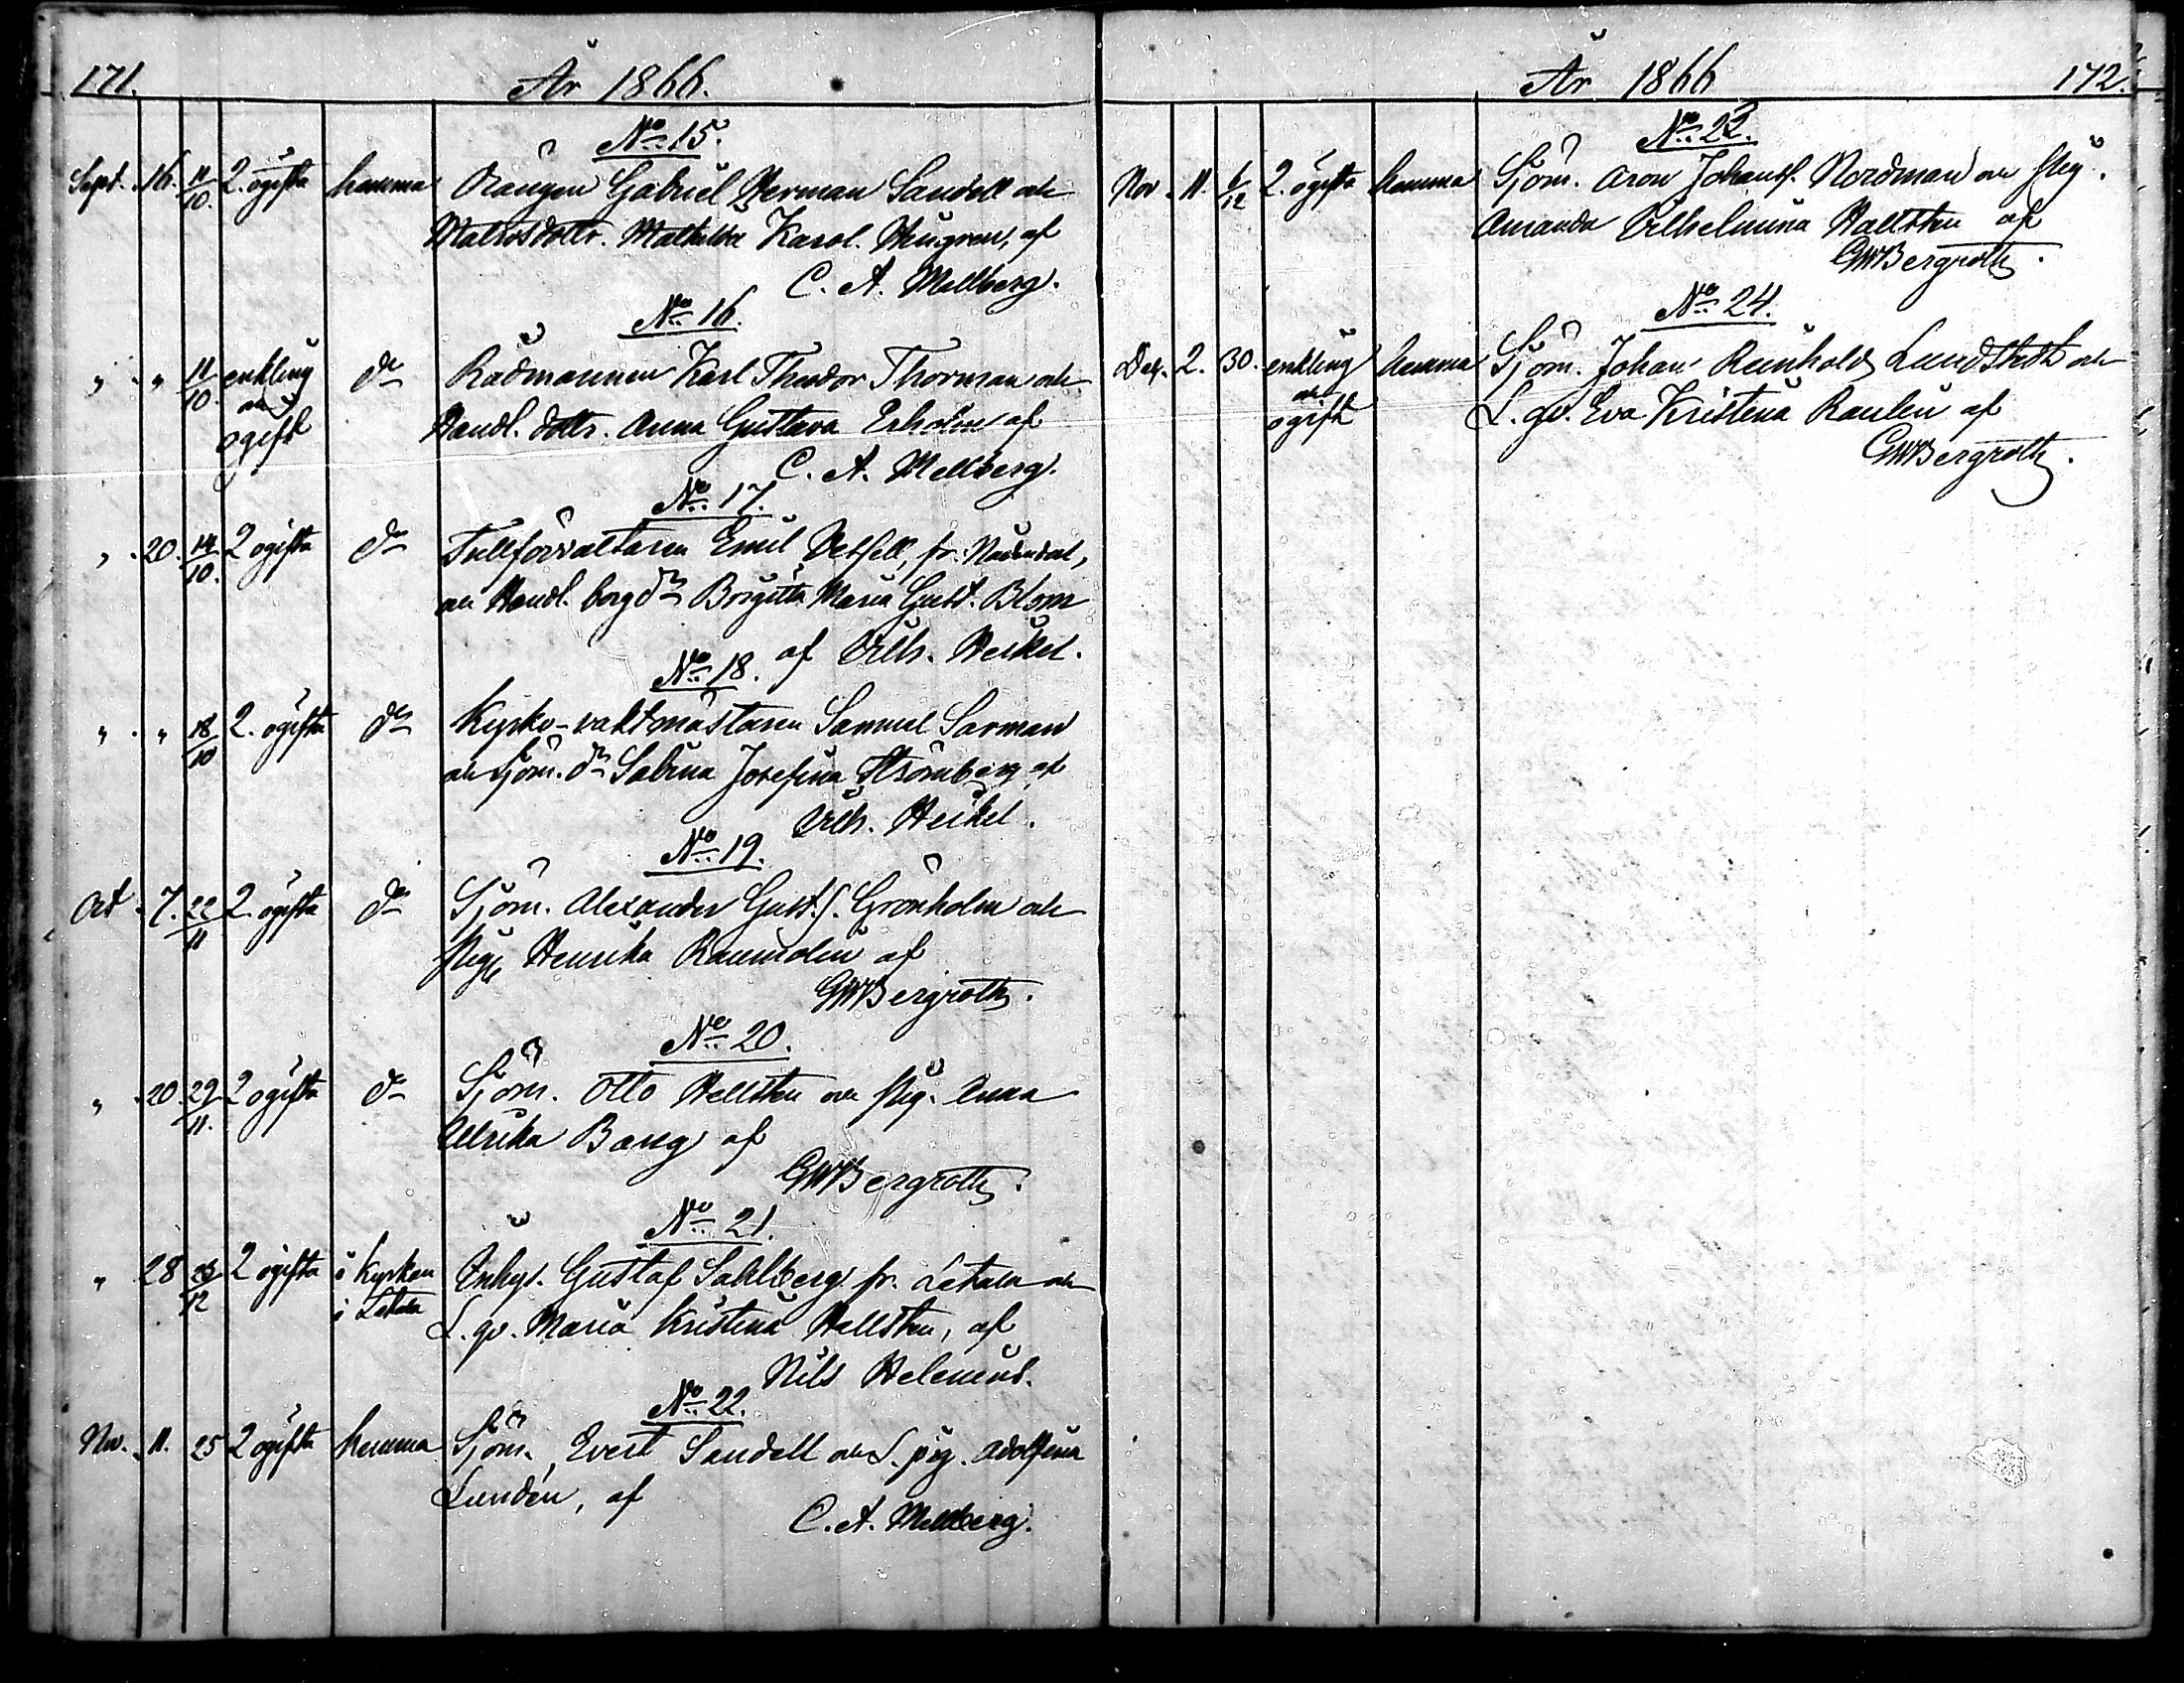 171. År 1866.
No 15.
Sept. 16. 11/10. 2. ogifta hemma Gabriel Herman Sandell och
Matrosdottr. Mathilda Karol. af
C. A. Mellberg.
No 16.
" " 11/10. enkling och ogift do Rådmannen Karl Theodor Thorman och
Handl. dottr. Anna Gustava af
C. A. Mellberg.
No 17.
" 20. 14/10. 2 ogifta do Tullförvaltaren Emil fr. Nådendal,
och Handl. borg dr Brigitta Maria Gust. Blom
af Vilh. Heikel.
No 18.
" " 18/10 2. ogifta do Kyrko-vaktmästaren Samuel Sarman
och Sjöm. dr Sabina Josefina Strömberg af
Vilh. Heikel.
No 19.
Oct. 7. 22/11 2. ogifta do Sjöm. Alexander Gust.s. Grönholm och
Pig. Henrika af
GWBergroth.
No 20.
" 20. 29/11. 2 ogifta do Sjöm. Otto Hellsten och Pig.
Ulrika Bang af
GWBergroth.
No 21.
" 28 /12 2 ogifta i Kyrkan i Letala Inhys. Gustaf Sahlberg fr. Letala och
L. qv. Maria Kristina Hellsten, af
Nils Helenius.
No 22.
Nov. 11. 25 2 ogifta hemma Sjöm. Evert Sandell och S. pig. Adolfina
Lundén, af
C. A. Mellberg.
År 1866 172.
No 22.
Nov. 11. 6/12 2. ogifta hemma Sjöm. Aron Johanss. Nordman och Pig.
Amanda Vilhelmina Hallsten af
GWBergroth.
No 24.
Dec. 2. 30. enkling och ogift hemma Sjöm. Johan Reinhold Lundstedt och
L. qv. Eva Kristina Raulin af
GWBergroth.